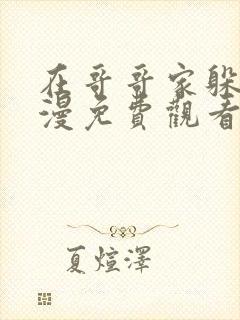 在哥哥家躲
漫免費觀看
夏煊澤